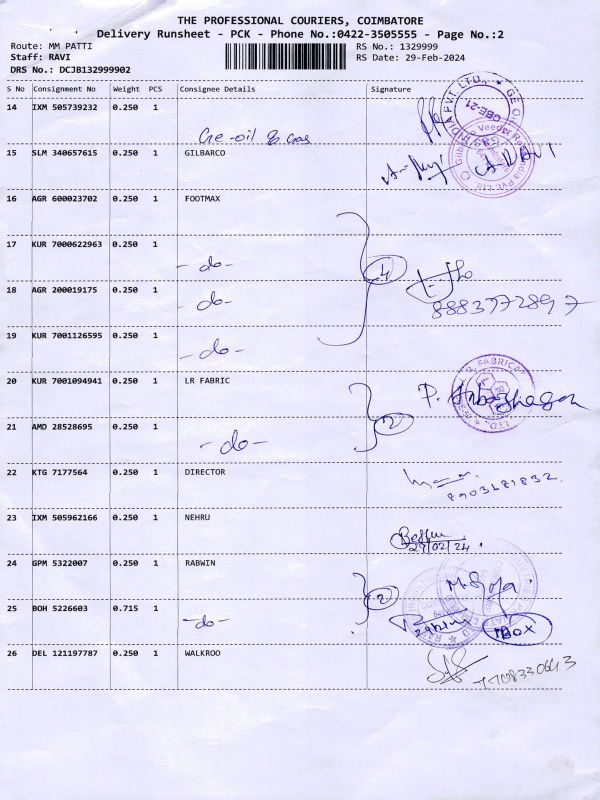 THE PROFESSIONAL COURIERS, COIMBATORE
Delivery Runsheet - PCK - Phone No.:0422-3505555 - Page No.:2
Route: MM PATTI
Staff: RAVI
DRS No.: DCJB132999902
RS No.: 1329999
RS Date: 29-Feb-2024
S No Consignment No Weight PCS Consignee Details Signature
14 IXM 505739232 0.250 1
Ge-oil & Gas
15 SLM 340657615 0.250 1 GILBARCO
16 AGR 600023702 0.250 1 FOOTMAX
17 KUR 7000622963 0.250 1
-do-
4
18 AGR 200019175 0.250 1
-do-
19 KUR 7001126595 0.250 1
-do-
20 KUR 7001094941 0.250 1 LR FABRIC
2
21 AMD 28528695 0.250 1
-do-
22 KTG 7177564 0.250 1 DIRECTOR
8903481832
23 IXM 505962166 0.250 1 NEHRU
29/02/24.
24 GPM 5322007 0.250 1 RABWIN
2
25 BOH 5226603 0.715 1
-do-
BOX
26 DEL 121197787 0.250 1 WALKROO
7708330643